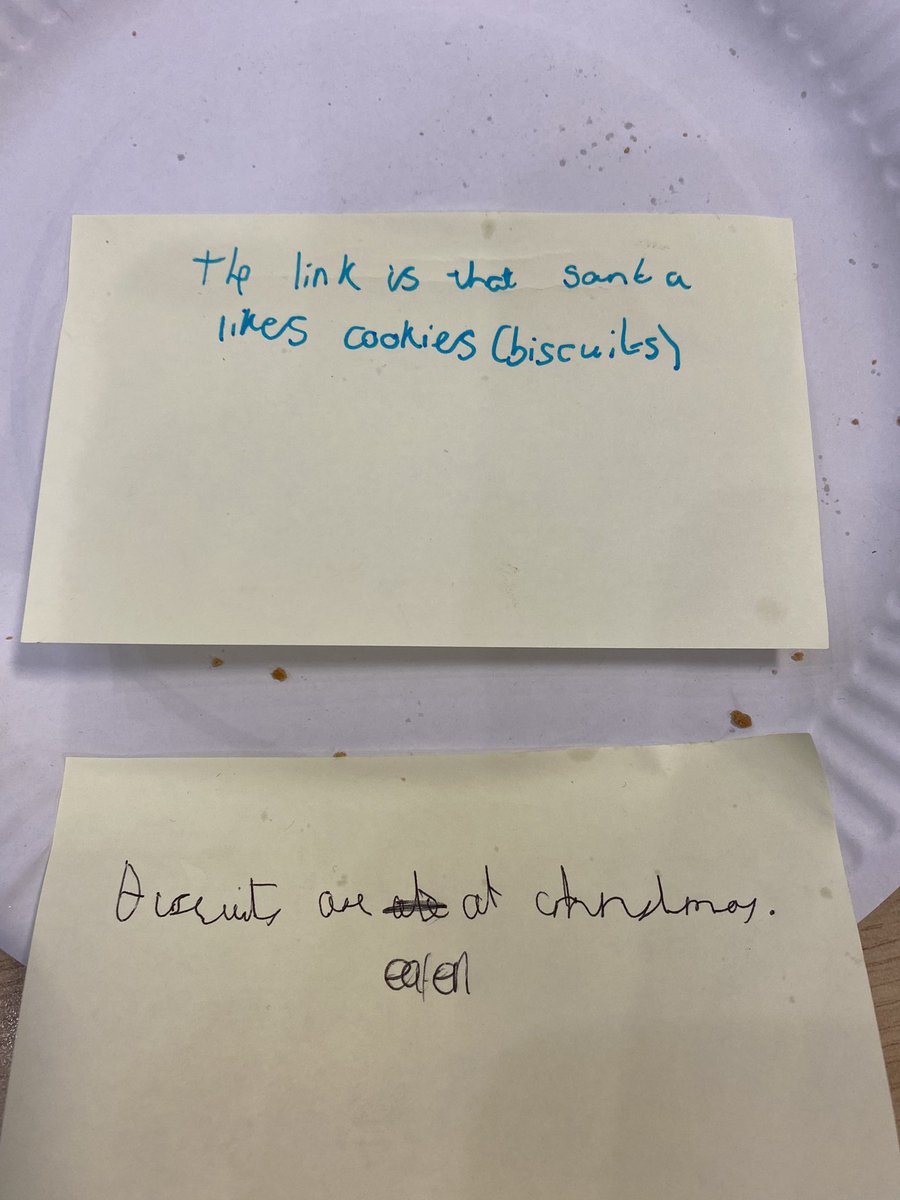 The link is that santa
likes cookies (biscuits)
Biscuits are ate at christmas.
eaten